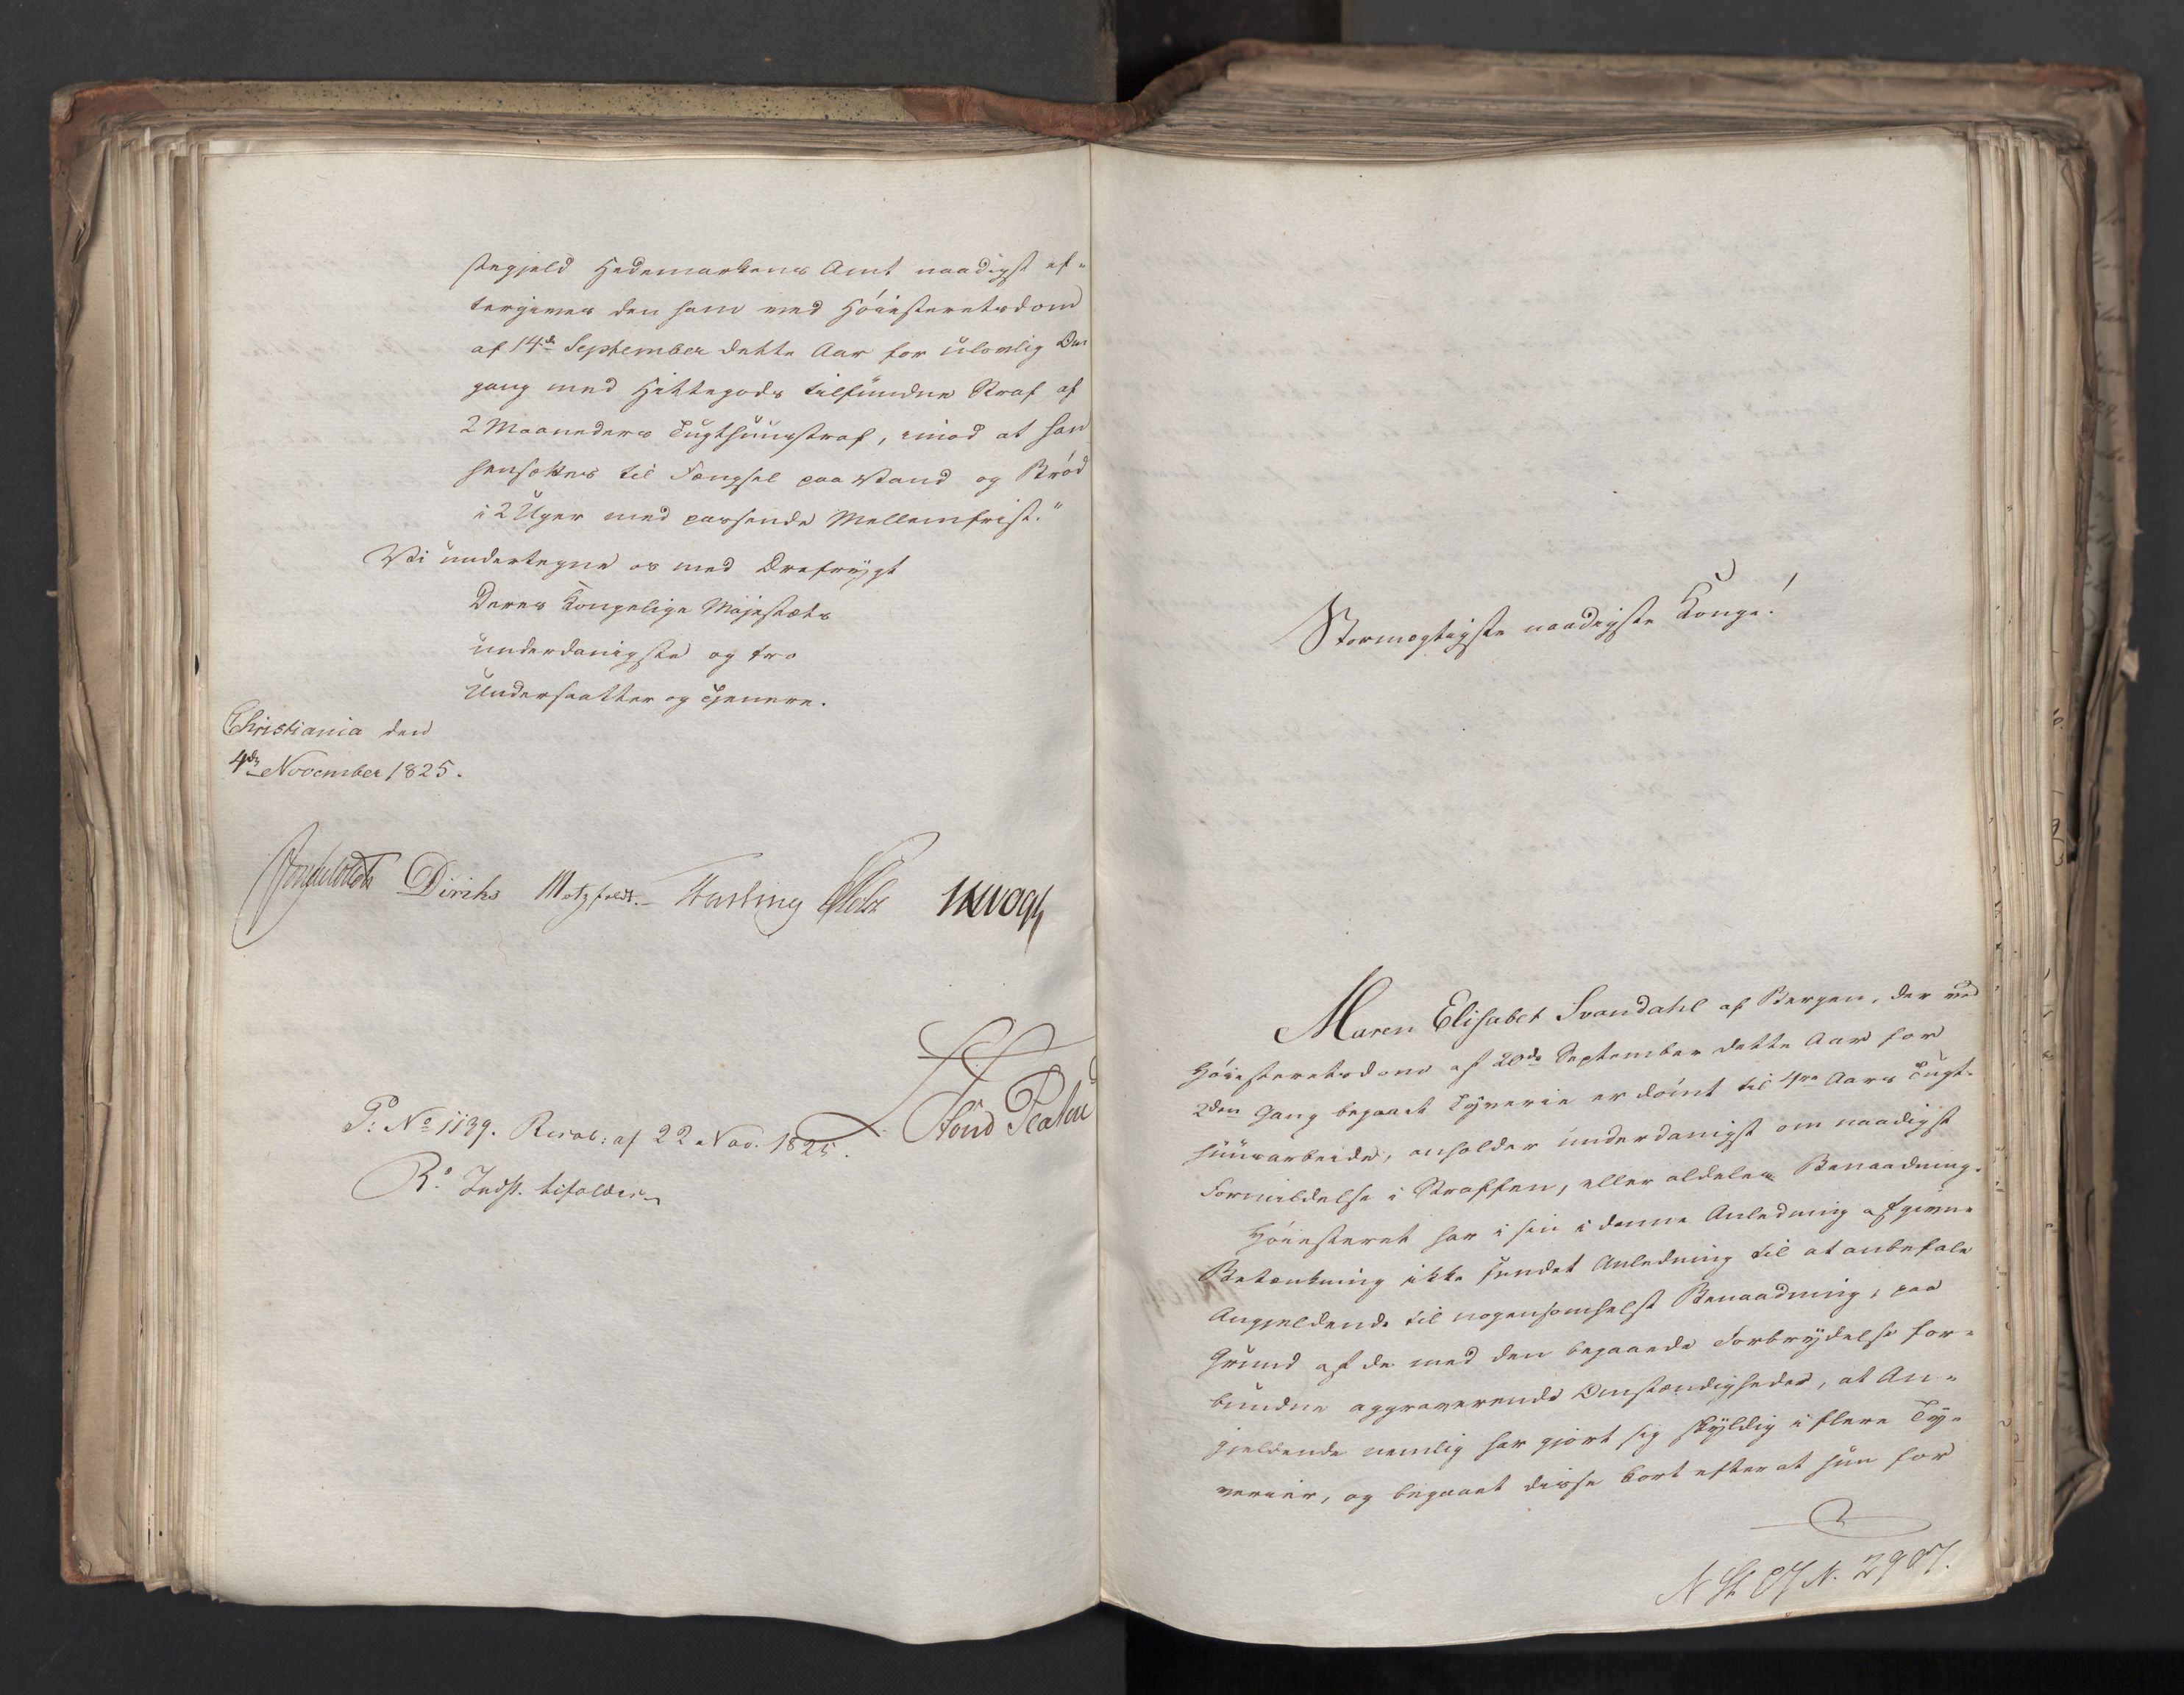 stegjeld Hedemarkens Amt naadigst ef-
tergives den ham ved Höiesteretsdom
af 14de September dette Aar for ulovlig Om
gang med Hittegods tilfundne Straf af
2 Maaneders Tugthuusstraf, imod at han
hensættes til Fængsel paa Vand og Bröd
i 2 Uger med passende Mellemfrist."
Vi undertegne os med Ærefrygt
Deres Kongelige Majestæts
underdanigste og tro
Undersaatter og Tjenere.
Christiania den
4de November 1825.
Diriks Motzfeldt. Fasting Holst
P: No 1139. Resol: af 22 Nov. 1825.
Rs Indst. bifaldes
Stormægtigste naadigste Konge!
Maren Elisabet Svandahl af Bergen, der ved
Höiesteretsdom af 20de September dette Aar for
2den Gang begaaet Tyverie er dömt til 4re Aars Tugt-
huusarbeide, anholder underdanigst om naadigst
Formildelse i Straffen, eller aldeles Benaadning.
Höiesteret har i sin i denne Anledning afgivne
Betænkning ikke fundet Anledning til at anbefale
Angjeldende til nogensomhelst Benaadning, paa
Grund af de med den begaaede Forbrydelse for-
bundne aggraverende Omstændigheder, at An-
gjeldende nemlig har gjort sig skyldig i flere Ty-
verier, og begaaet disse kort efterat hun for